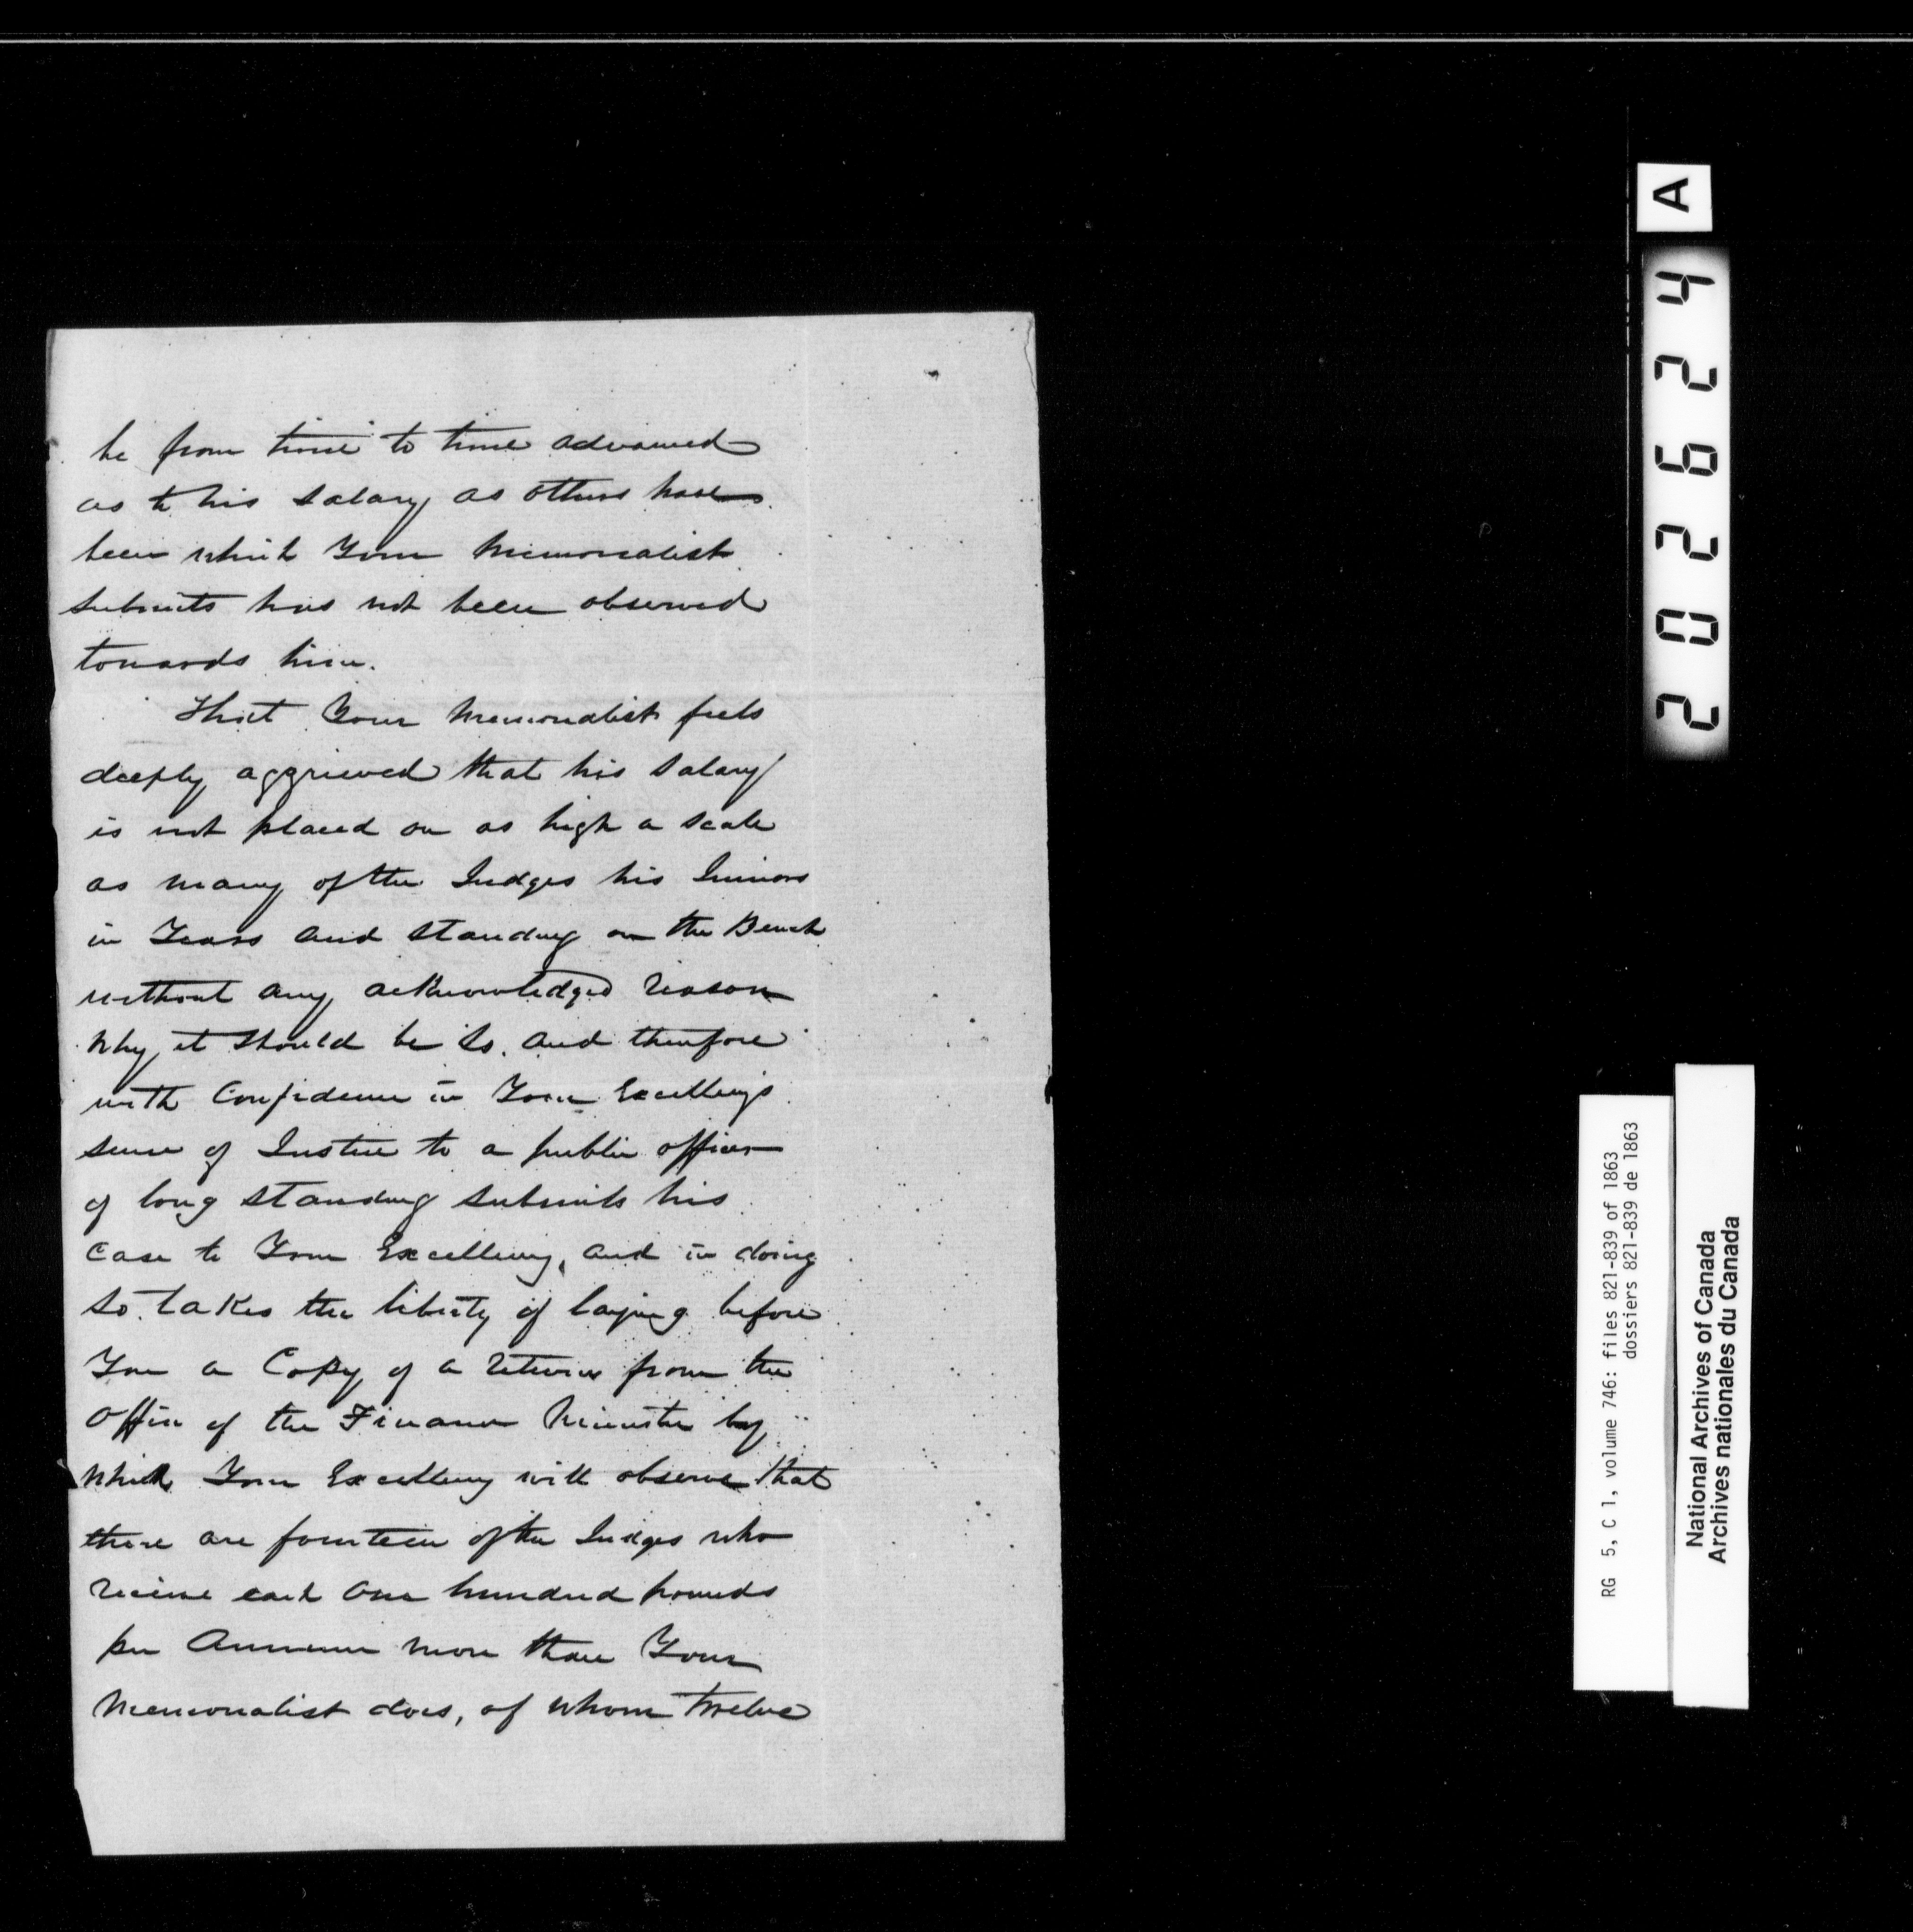 be from time to time advanced
as to his Salary as others have
been which Your Memorialist
submits has not been observed
towards him.
That Your Memorialist feels
deeply aggrieved that his Salary
is not placed on as high a scale
as many of the Judges his Juniors
in Years and standing on the Bench
without any acknowledged reason
why it should be so. and therefore
with Confidence in Your Excellency's
sense of Justice to a public officer
of long standing submits his
Case to Your Excellency, and in doing
so takes the liberty of laying before
You a Copy of a return from the
Office of the Finance Minister by
which Your Excellency will observe that
there are fourteen of the Judges who
receive each One hundred pounds
per Annum more than Your
Memorialist does, of whom Twelve
A
202624
RG 5, C 1, volume 746: files 821-839 of 1863
dossiers 821-839 de 1863
National Archives of Canada
Archives nationales du Canada